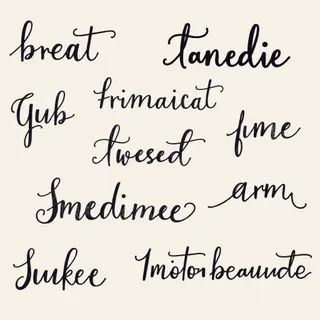 breat
tanedie
Gub
frimaicat
fume
twesed
Smedimee
arm
Juukee
1motor beauunde